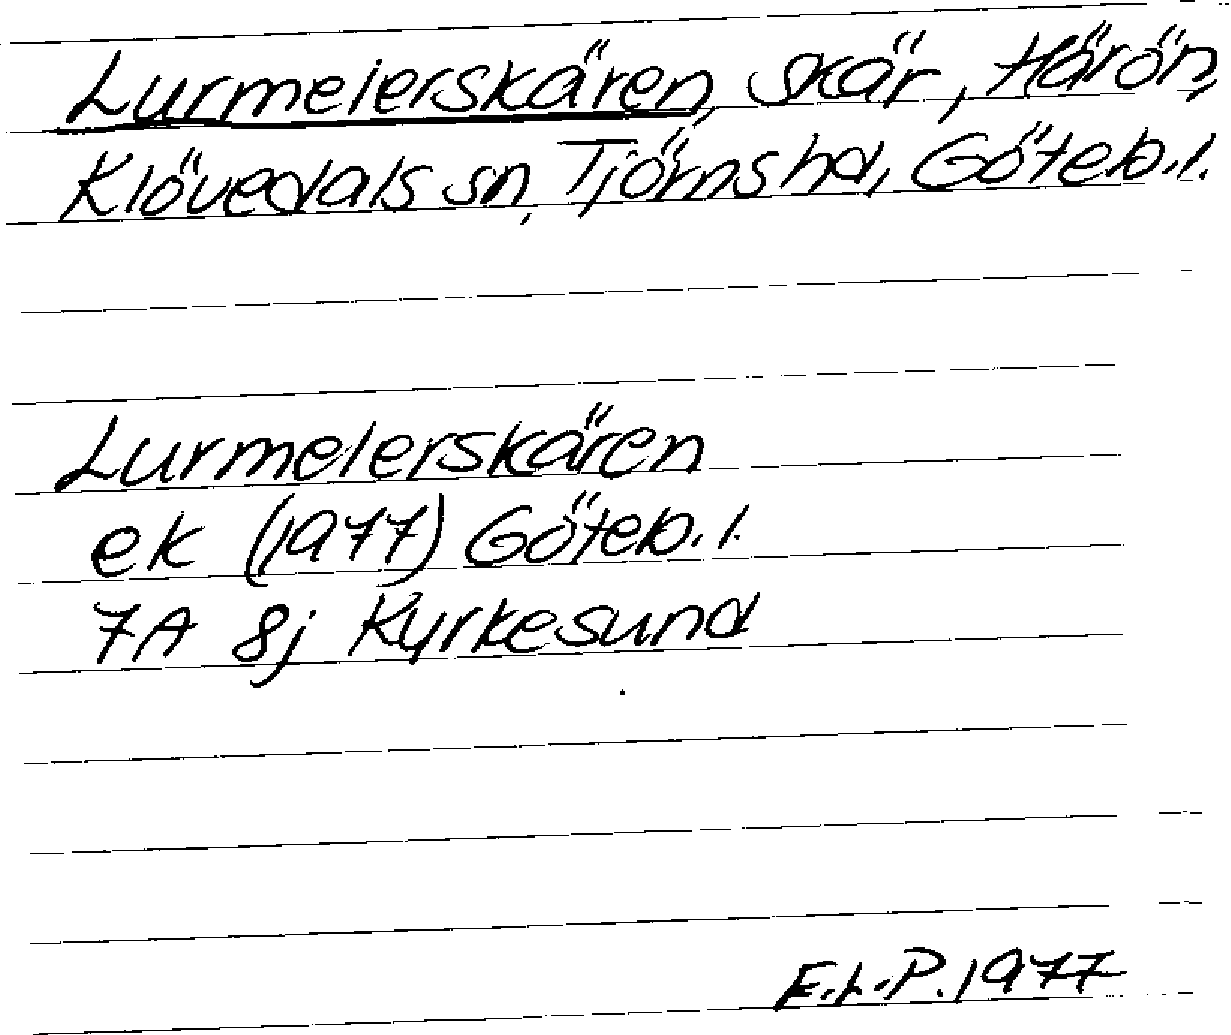 Lurmeierskären, skär, Härön,
Klövedals sn, Tjörns hd, Göteb. l.
Lurmeierskären
ek (1977) Göteb. l.
7A 8j Kyrkesund
E.L.P. 1977